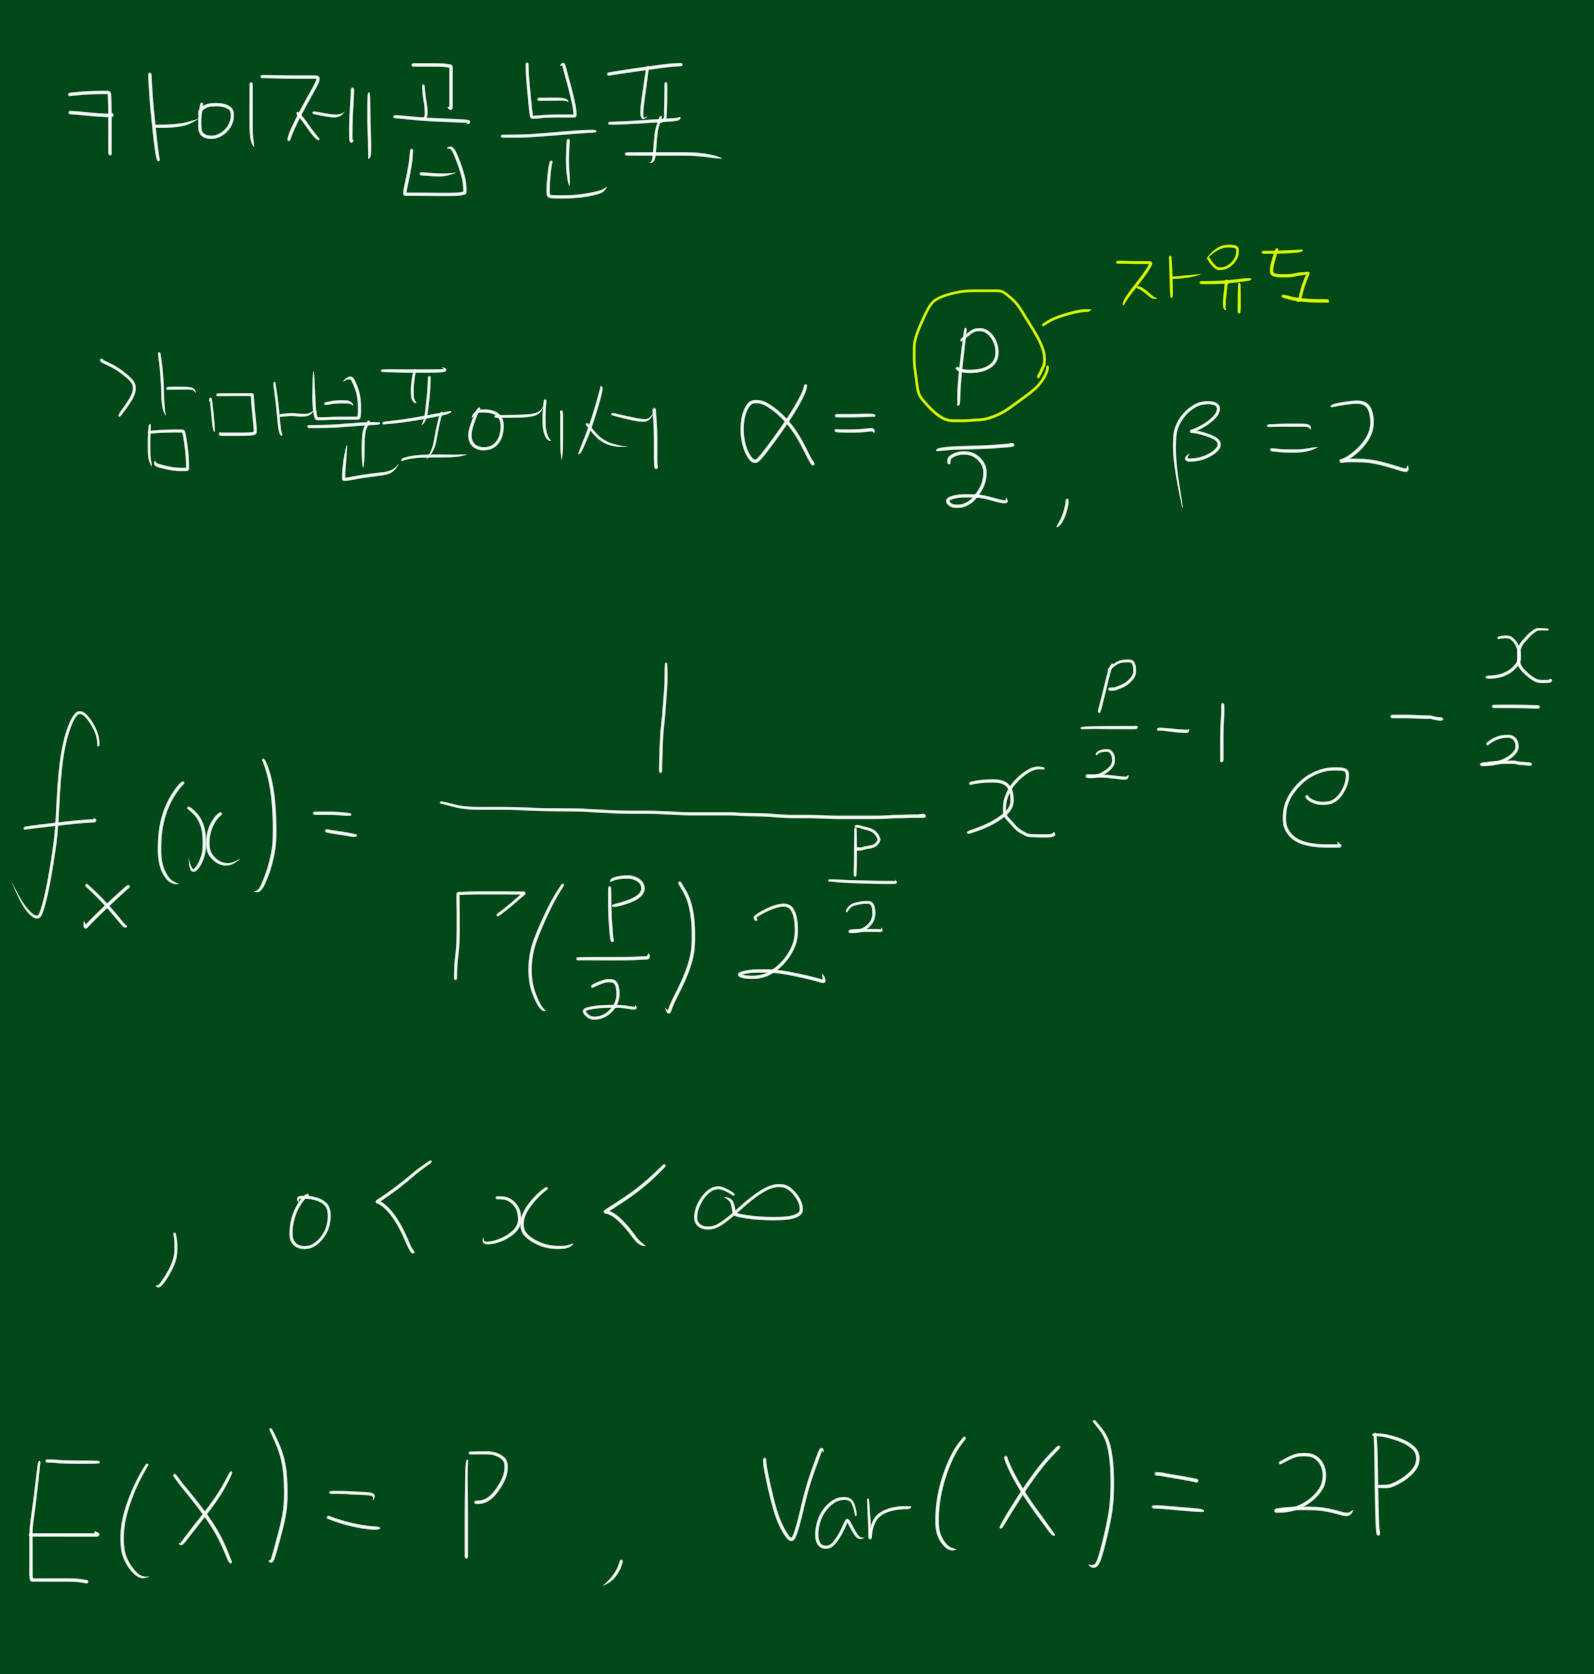 카이제곱분포
자유도
감마분포에서 α = p/2, β = 2
f_X(x) = 1 / (Γ(p/2) 2^(p/2)) x^(p/2 - 1) e^(-x/2)
, 0 < x < ∞
E(X) = P, Var(X) = 2P